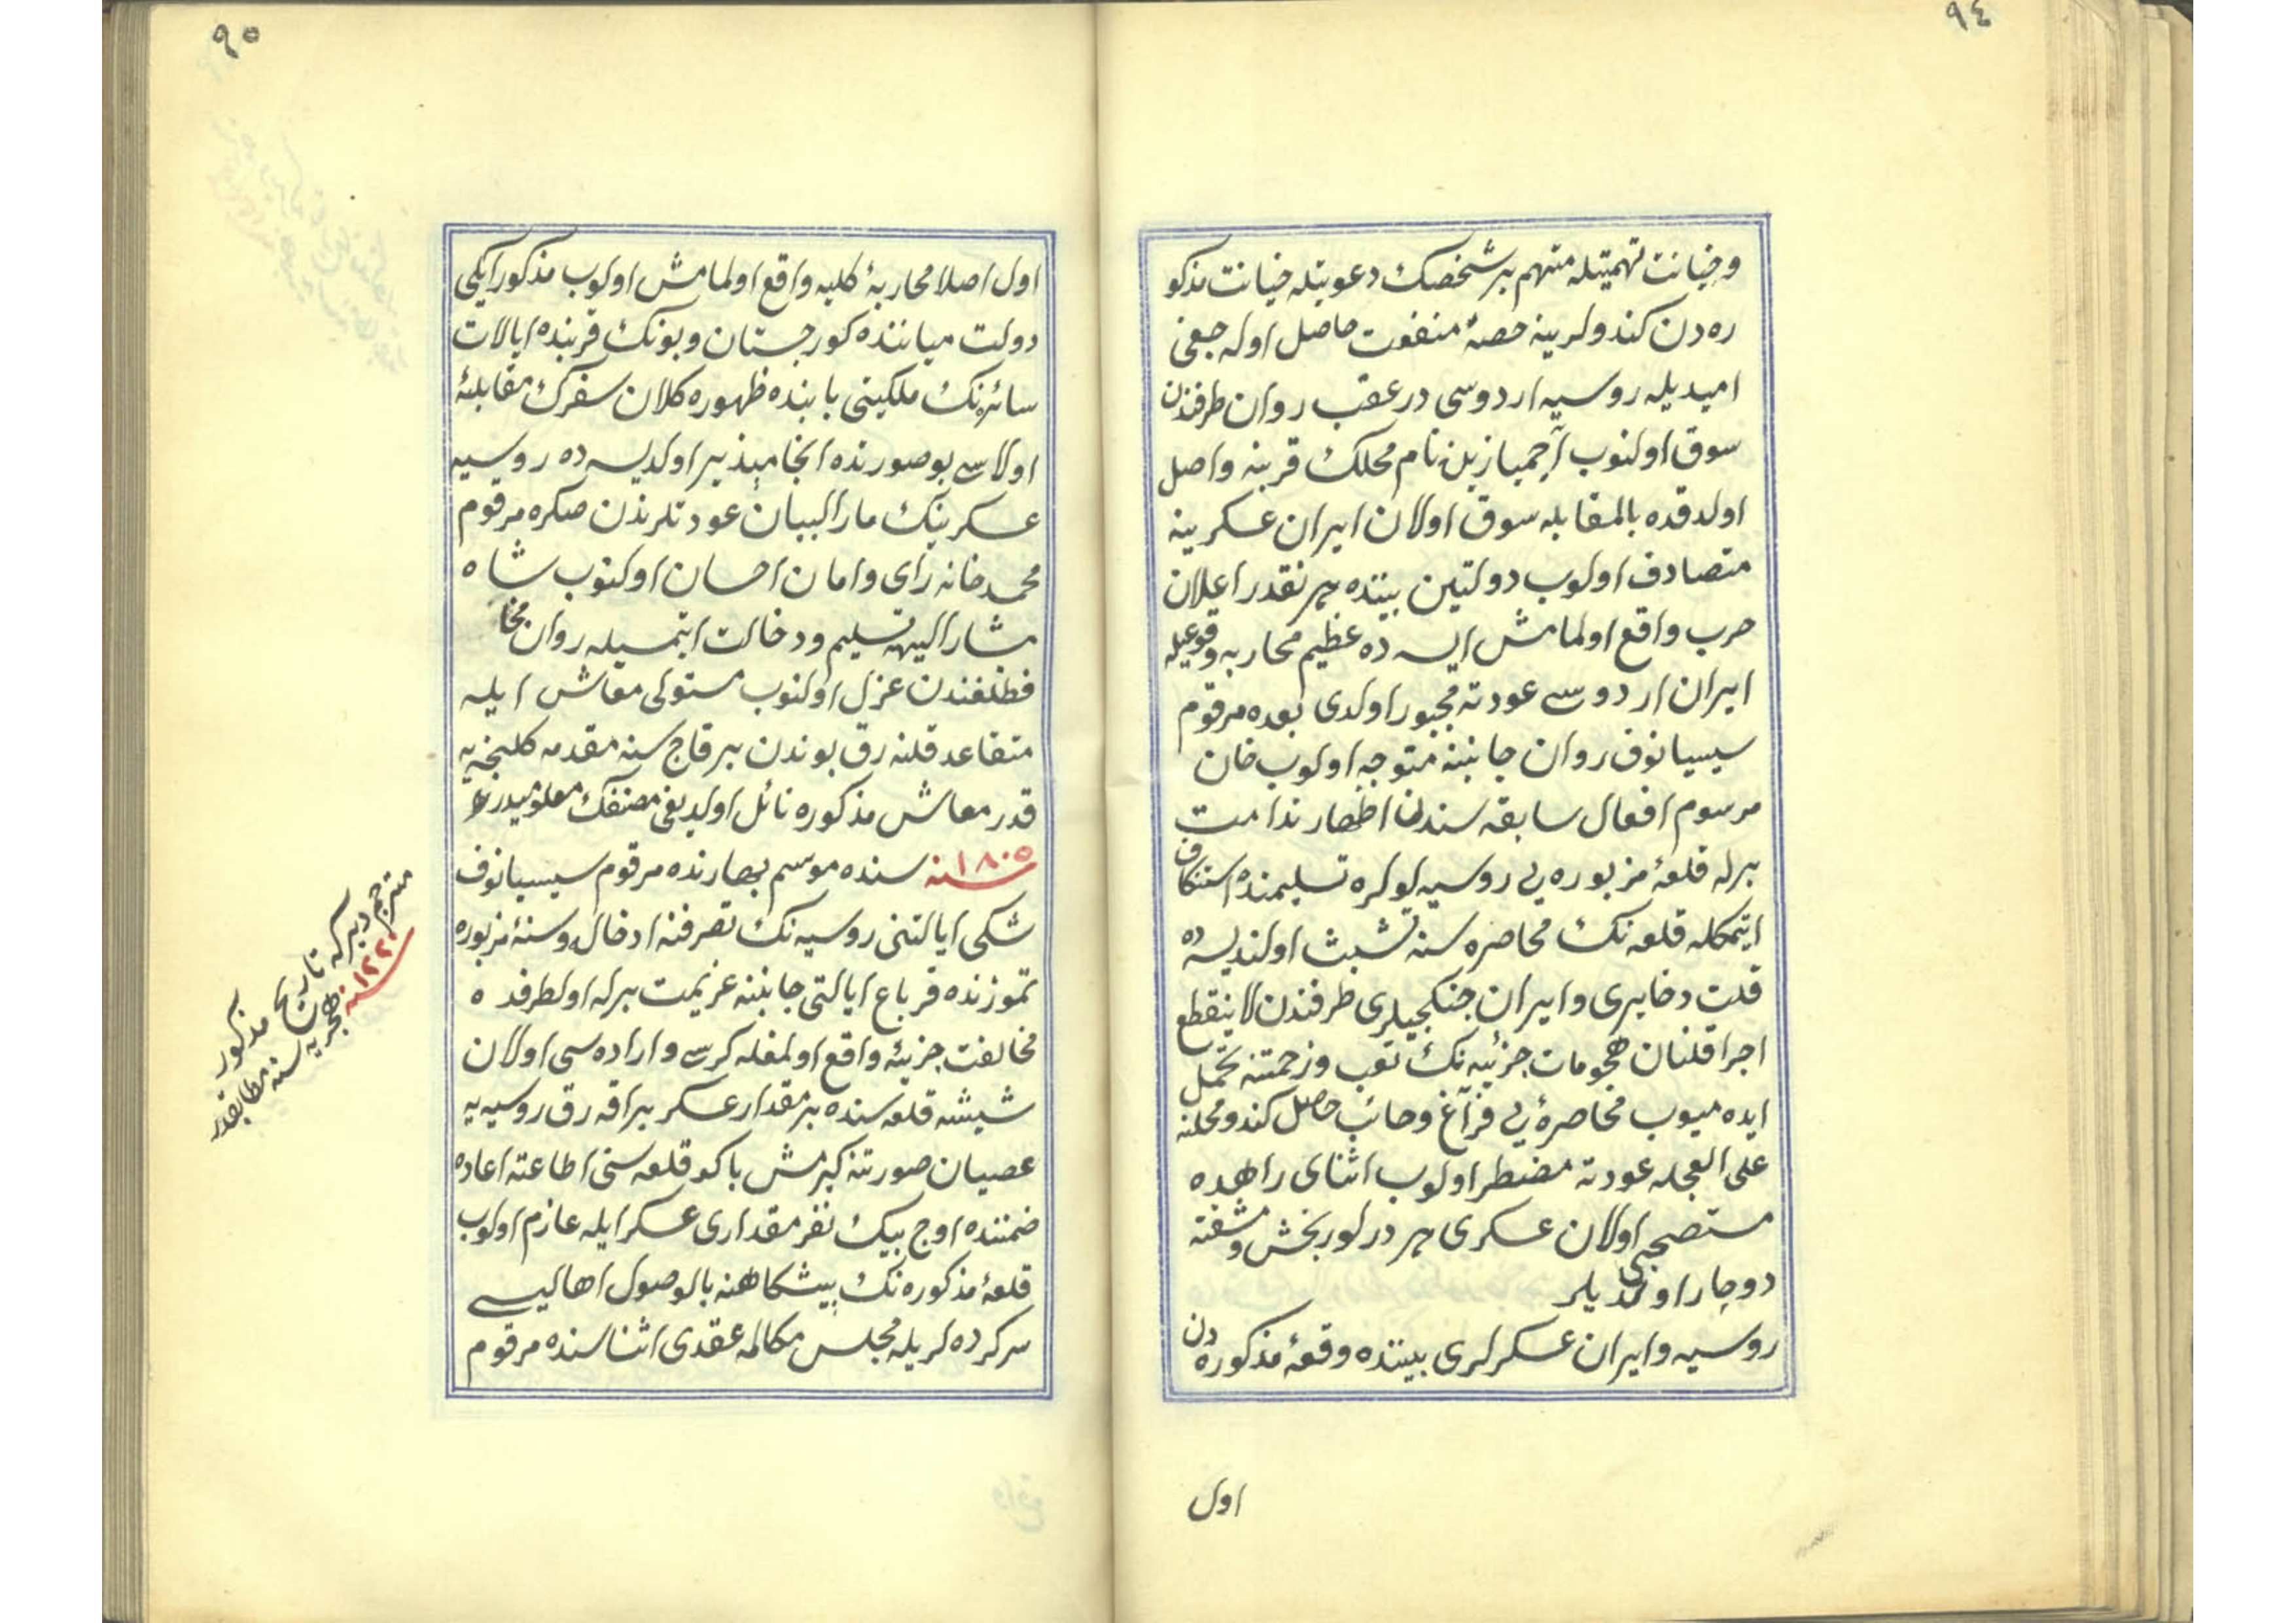 ٩٤
و خیانت تهمتیله متهم بر شخصك دعوتیله خیانت مذکو
ره دن کندولرینه حصهٔ منفعت حاصل اوله جغی
امیدیله روسیه اردوسی در عقب روان طرفندن
سوق اولنوب آچمیازین نام محلك قربنه واصل
اولدقده بالمقابله سوق اولان ایران عسکرینه
متصادف اولوب دولتین بیننده هر نقدر اعلان
حرب واقع اولمامش ایسه ده عظیم محاربه وقوعیله
ایران اردوسی عودته مجبور اولدی بعده مرقوم
سیسیانوف روان جانبنه متوجه اولوب خان
مرسوم افعال سابقه سندن اظهار ندامت
برله قلعهٔ مزبوره یی روسیه لولره تسلیمنده استنکاف
ایتمکله قلعه نك محاصره سنه تشبث اولندیسه ده
قلت دخایری و ایران جنکجیلری طرفندن لا ینقطع
اجرا قلنان هجومات جزئیه نك تعب و زحمتنه تحمل
ایده میوب محاصره یی فراغ و خائب حاصل کندو محلنه
علی العجله عودته مضطر اولوب اثنای راهده
مستصحبی اولان عسکری هر درلو رنجش و مشقته
دوچار اولدیلر
روسیه و ایران عسکرلری بیننده وقعهٔ مذکوره دن
اول
٩٥
اول اصلا محاربهٔ کلیه واقع اولمامش اولوب مذکور ایکی
دولت میاننده کورجستان و بونك قربنده ایالات
سائره نك ملکیتی بابنده ظهوره کلان سفرك مقابلهٔ
اولاسی بو صورتده انجامپذیر اولدیسه ده روسیه
عسکرینك مار البیان عودتلرندن صکره مرقوم
محمد خانه رای و امان احسان اولنوب شاه
مشار الیهه تسلیم و دخالت ایتمسیله روان محا
فظلغندن عزل اولنوب مستوفی معاش ایله
متقاعد قلنه رق بوندن بر قاچ سنه مقدمه کلنجیه
قدر معاش مذکوره نائل اولدیغی مصنفك معلومیدر
سنه ١٨٠٥ سنده موسم بهارنده مرقوم سیسیانوف
شکی ایالتنی روسیه نك تصرفنه ادخال و سنهٔ مزبوره
تموزنده قرباغ ایالتی جانبنه عزیمت برله اولطرفده
مخالفت جزئیه واقع اولمغله کرسی و اراده سی اولان
شیشه قلعه سنده بر مقدار عسکر براقه رق روسیه یه
عصیان صورتنه کیرمش باکو قلعه سنی اطاعته اعاده
ضمننده اوچ بیك نفر مقداری عسکر ایله عازم اولوب
قلعهٔ مذکوره نك پیشکاهنه بالوصول اهالیسی
سرکرده لریله مجلس مکالمه عقدی اثناسنده مرقوم
مترجم دیر که تاریخ مذکور
سنه ١٢٢٠ هجریه سنه مطابقدر